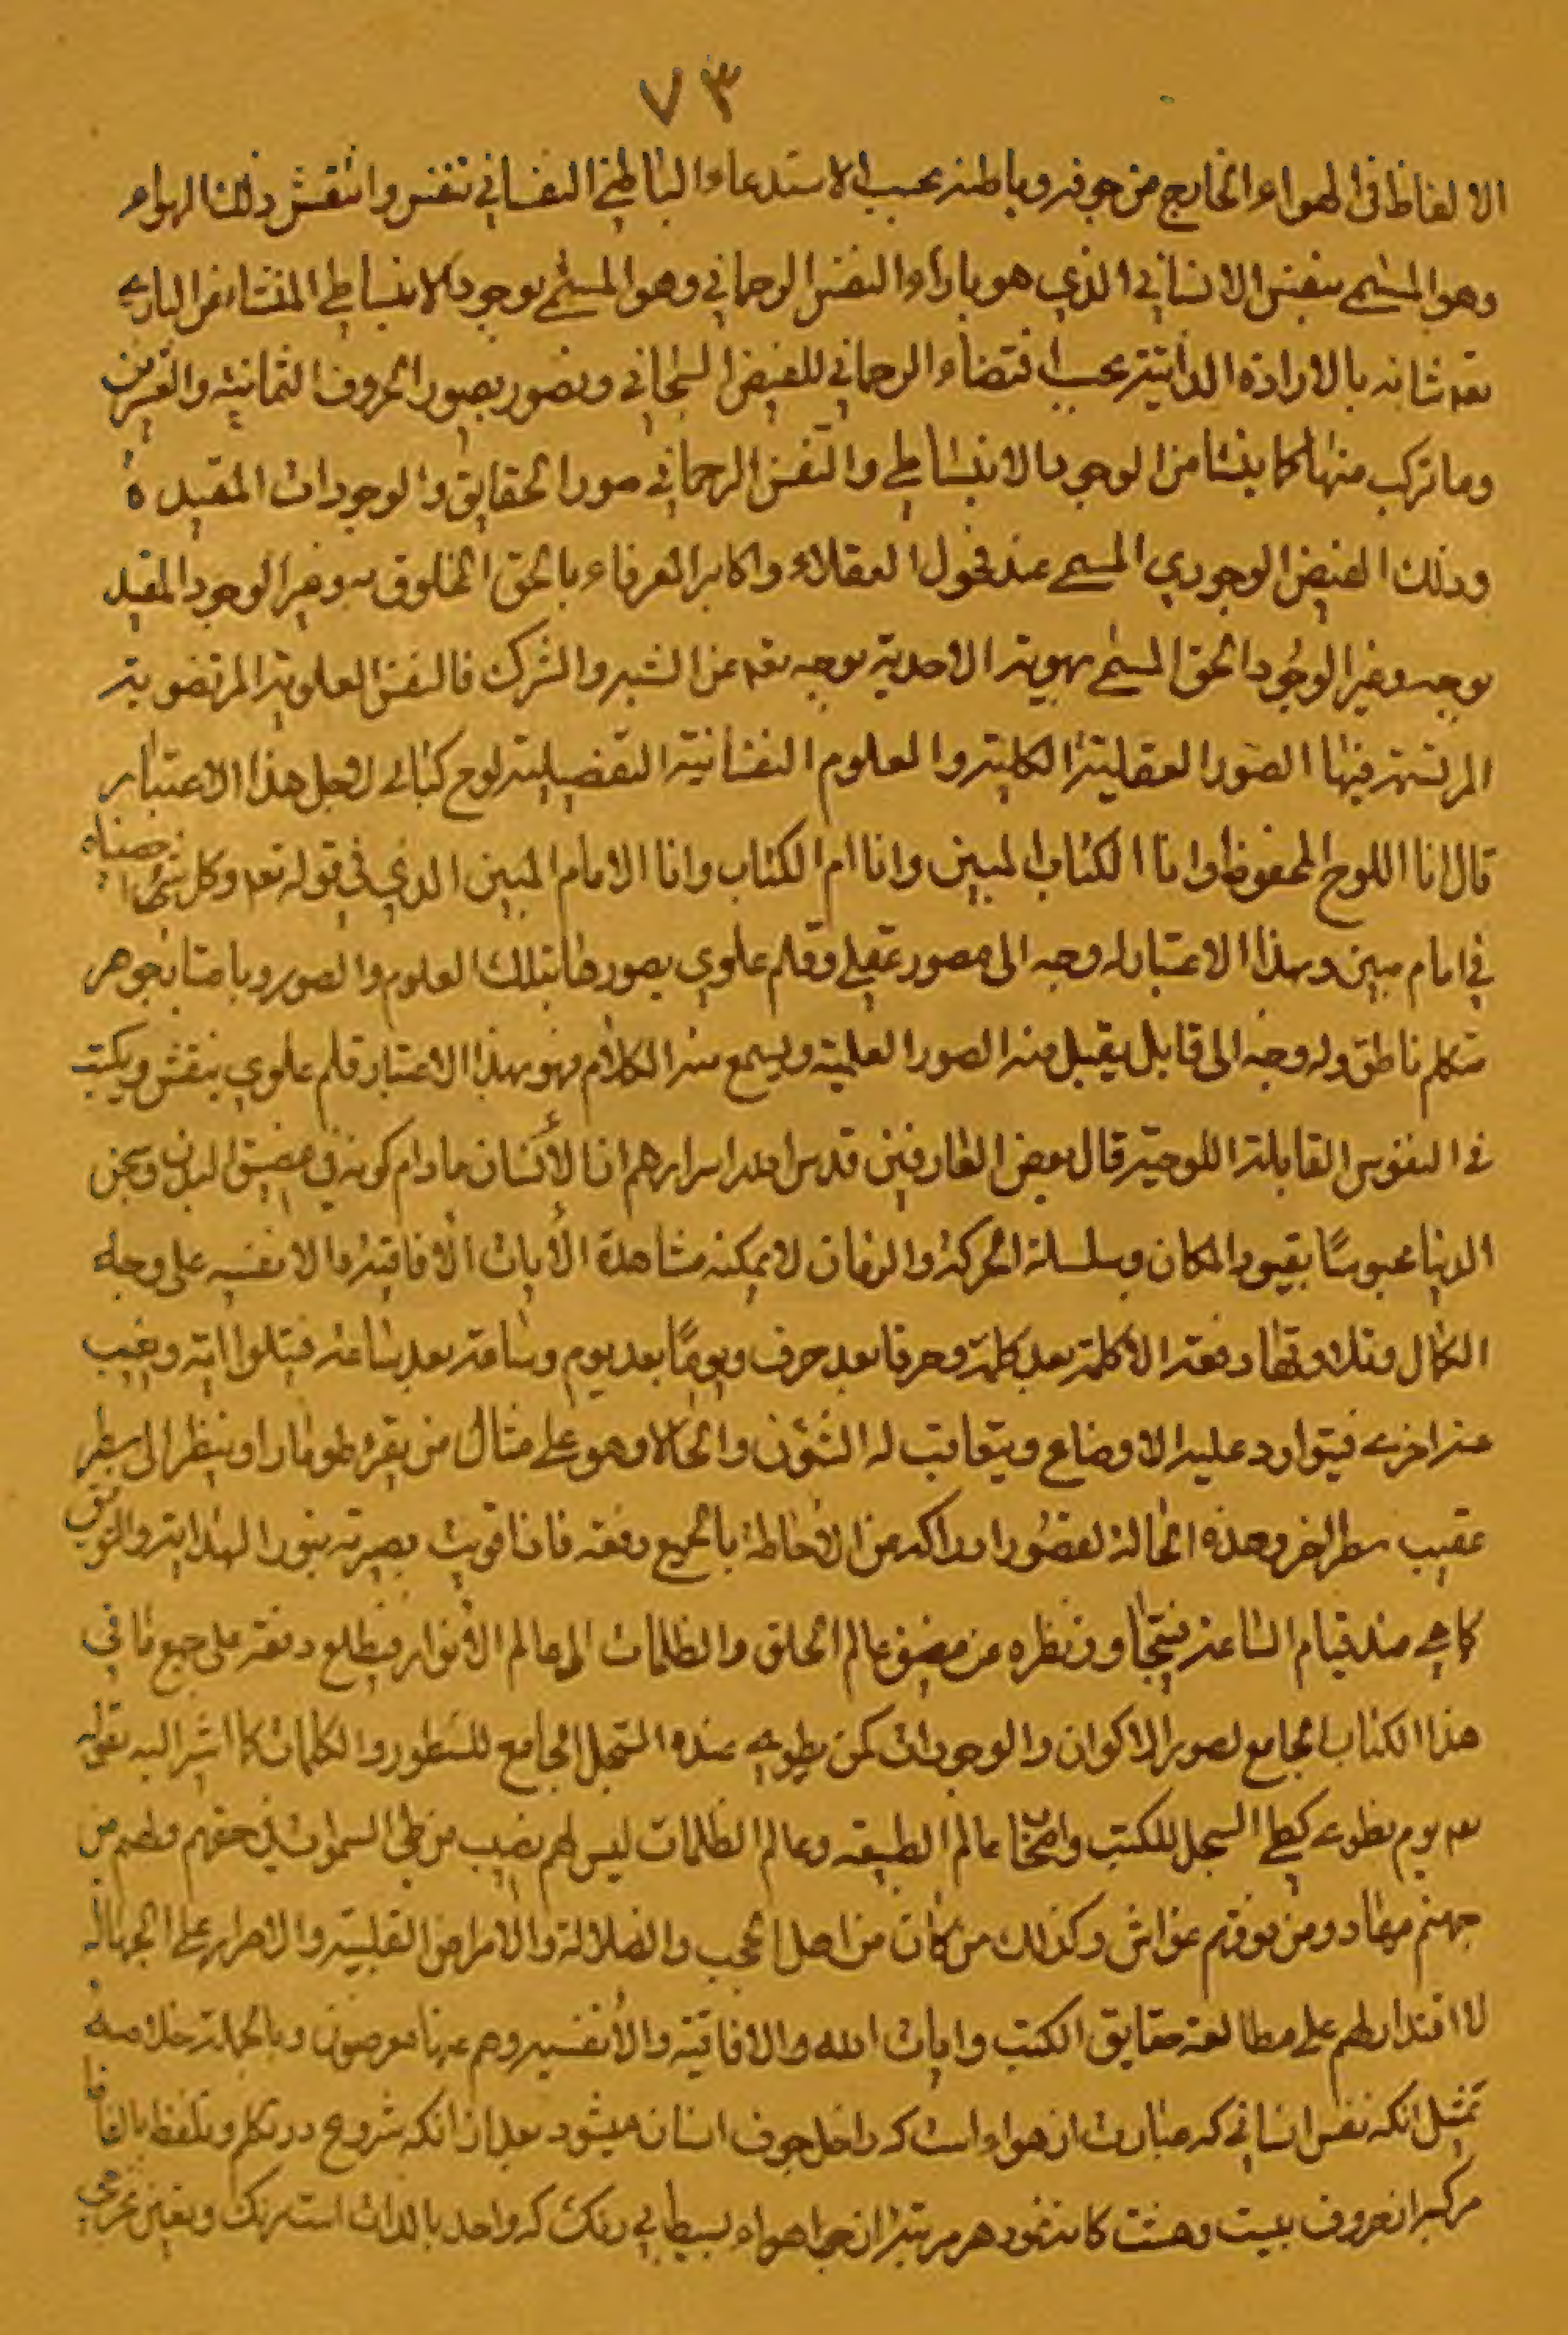 ٧٣
الالفاظ فی الهواء الخارج من جوفه وباطنه بحسب الاستدعاء الباطنی النفسانی تنفس وانتقش ذلك الهواء
وهو المسمی بنفس الانسانی الذی هو بازاء النفس الرحمانی وهو المسمی بوجود الانبساطی المنشا من الباری
تعه شانه بالارادة الذاتیة بحسب اقتضاء الرحمانی للفیض السبحانی وتصور بصور الحروف الثمانیة والعشرین
وما ترکب منها کما ینشا من الوجود الانبساطی والنفس الرحمانی صور الحقایق والوجودات المقیدة
وذلك الفیض الوجودی المسمی عند فحول العقلاء واکابر العرفاء بالحق المخلوق به وغیر الوجود المقید
بوجه وغیر الوجود الحق المسمی بهویة الاحدیة بوجه تعه عن الشبه والشرك فالنفس العلویة المرتضویة
المرتسمة فیها الصور العقلیة الکلیة والعلوم النفسانیة التفصیلیة لوح کتابی لاجل هذا الاعتبار
قال انا اللوح المحفوظ وانا الکتاب المبین وانا ام الکتاب وانا الامام المبین الذی فی قوله تعه وکل شئ احصیناه
فی امام مبین وبهذا الاعتبار له وجه الی مصور عقلی وقلم علوی یصورها بتلك العلوم والصور وباعتبار جوهر
متکلم ناطق وله وجه الی قابل یقبل منه الصور العلمیة ویسمع منه الکلام فهو بهذا الاعتبار قلم علوی ینقش ویکتب
فی النفوس القابلة اللوحیة قال بعض العارفین قدس الله اسرارهم ان الانسان ما دام کونه فی مضیق البدن وسجن
الدنیا محبوسًا بقیود المکان وسلسلة الحرکة والزمان لا یمکنه مشاهدة الآیات الآفاقیة والانفسیه علی وجه
الکمال وتلاوتها دفعة الا کلمة بعد کلمة وحرفا بعد حرف ویومًا بعد یوم وساعة بعد ساعة فیتلوا آیة ویغیب
عنه اخری فیتوارد علیه الاوضاع ویتعاقب له الشئون والحالات وهو علی مثال من یقرء طومارا وینظر الی سطر
عقیب سطر اخر وهذه الحالة لقصور ادراکه عن الاحاطة بالجمیع دفعه فاذا قویت بصیرته بنور الهدایة والتوفیق
کما هی عند قیام الساعة فیتجاوز نظره عن مضیق عالم الخلق والظلمات الی عالم الانوار فیطلع دفعة علی جمیع ما فی
هذا الکتاب الجامع لصور الاکوان والوجودات کمن یطوی عنده السجل الجامع للسطور والکلمات کما اشیر الیه بقوله
تعه یوم نطوی کطی السجل للکتب واصحاب عالم الطبیعه وعالم الظلمات لیس لهم نصیب من طی السموات فی حقهم ولهم من
جهنم مهاد ومن فوقهم غواش وکذلك من کان من اهل الحجب والضلالة والامراض القلبیة والاصرار علی الجهالة
لا اقتدار لهم علی مطالعة حقایق الکتب وآیات الله والآفاقیة والانفسیه وهم عنها معرضون وبالجملة خلاصه
تمثیل آنکه نفس انسانی که عبارت از هواء است که داخل جوف انسان میشود بعد از آنکه شروع در تکلم وتلفظ بالفاظ
مرکبه از حروف بیست وهشت کانه نمود هر مرتبه از هواء بسیط بی رنك که واحد بالذات است رنك وتعین حرفی